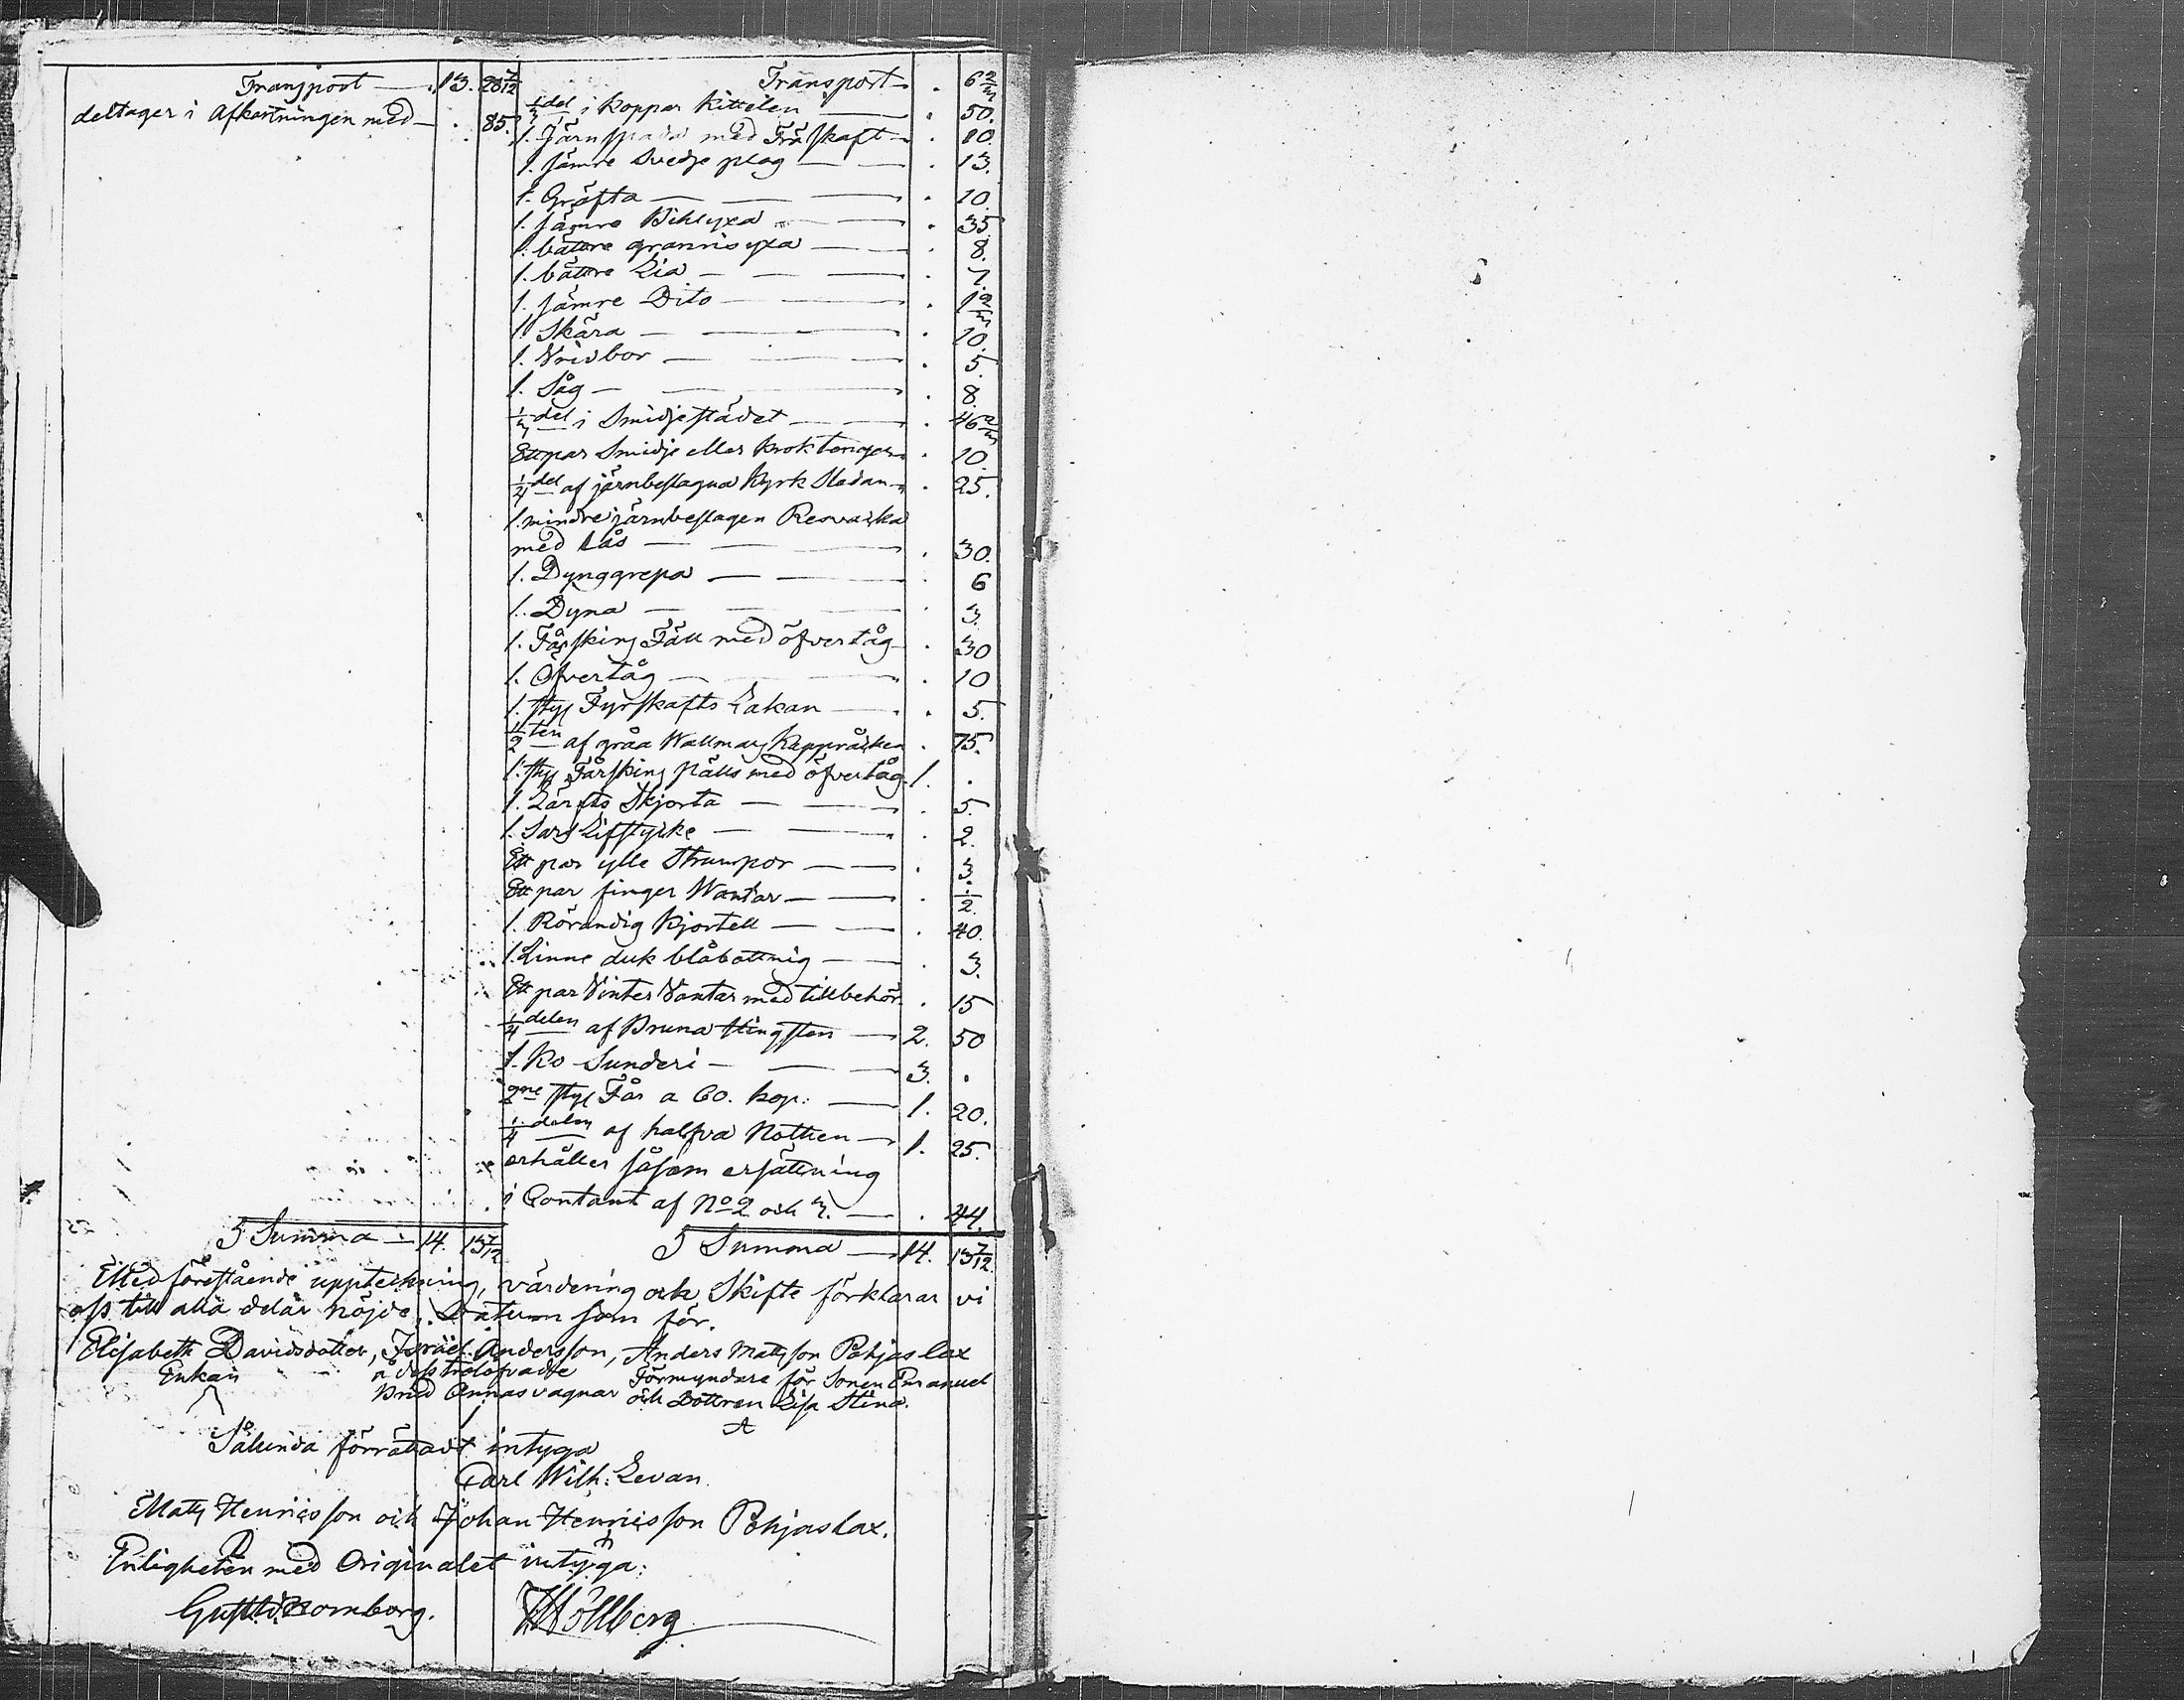 Transport — 13. 28 7/12
deltager i Afkastningen med — . 85.
Transport — . 6 2/3
1/3 del i koppar kittelen — . 50.
1. Järnspada med Träskaft — . 10.
1. sämre Svedje plag — . 13.
1. Gräfta — . 10.
1. sämre Bihlyxa — . 35
1. bättre grannis yxa — . 8.
1. bättre Lia — . 7.
1. sämre Dito — . 1 2/3
1. Skära — . 10.
1. Vridbor — . 5.
1. Såg — . 8.
1/3 del i Smidjestädet — . 46 2/3
Ett par Smidje eller krok tänger — . 10.
1/4 del af järnbeslagna Kyrk Slädan — . 25.
1. mindre järnbeslagen Resväska
med Lås — . 30.
1. Dynggrepa — . 6
1. Dyna — . 3.
1. Fårskins Fäll med öfvertåg — . 30
1. Öfvertåg — . 10
1. styk Fyrskafts Lakan — . 5.
1/2 ten af gråa Wallmans Kappråcken . 75.
1. styk Fårskins pälls med öfvertåg 1. .
1. Lärfts Skjorta — . 5.
1. Sars Lifstycke — . 2.
Ett par ylle Strumpor — . 3.
Ett par finger Wantar — . 1/2.
1. Rörandig Kjortell — . 40.
1. Linne duk blåbottnig — . 3.
Ett par Vinter Vantar med tillbehör . 15
1/4 delen af Bruna Hingsten — 2. 50
1. Ko Sunderi — 3. .
2ne styk Får a 60. kop: — 1. 20.
1/4 delen af halfva Notten — 1. 25.
erhåller såsom ersättning
i Contant af No 2 och 3. — . 44.
S Summa — 14. 13 7/12
S Summa — 14. 13 7/12.
Med förestående uppteckning, värdering och Skifte förklarar vi
oss till alla delar nöjde, Datum som för.
Elisabeth Davidsdotter, Israel Andersson, Anders Mattsson Pohjaslax
Enkan å dess trolofvade Förmyndare för Sonen Emanuel
Brud Annas vagnar och Dottren Lisa Stina.
Sålunda förrättadt intyga
Carl Wilh: Levan.
Matts Henricsson och Johan Henricsson Pohjaslax.
Enligheten med Originalet intyga: